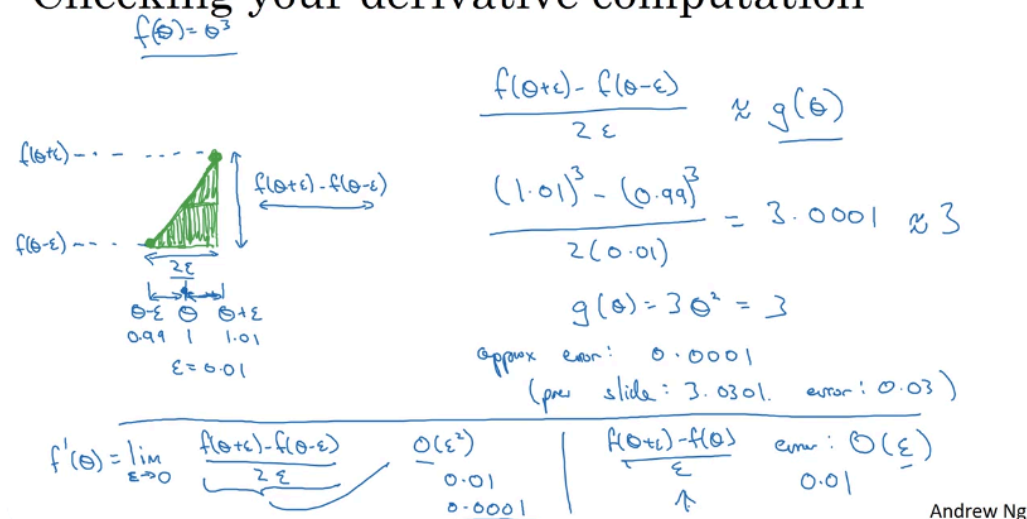 Checking your derivative computation
f(θ) = θ³
f(θ+ε) - f(θ-ε)
2ε
≈ g(θ)
f(θ+ε)
f(θ+ε) - f(θ-ε)
(1.01)³ - (0.99)³
2(0.01)
= 3.0001 ≈ 3
f(θ-ε)
2ε
θ-ε θ θ+ε
0.99 1 1.01
ε = 0.01
g(θ) = 3θ² = 3
approx error: 0.0001
(prev slide: 3.0301. error: 0.03)
f'(θ) = lim
ε→0
f(θ+ε) - f(θ-ε)
2ε
O(ε²)
0.01
0.0001
f(θ+ε) - f(θ)
ε
error: O(ε)
0.01
Andrew Ng